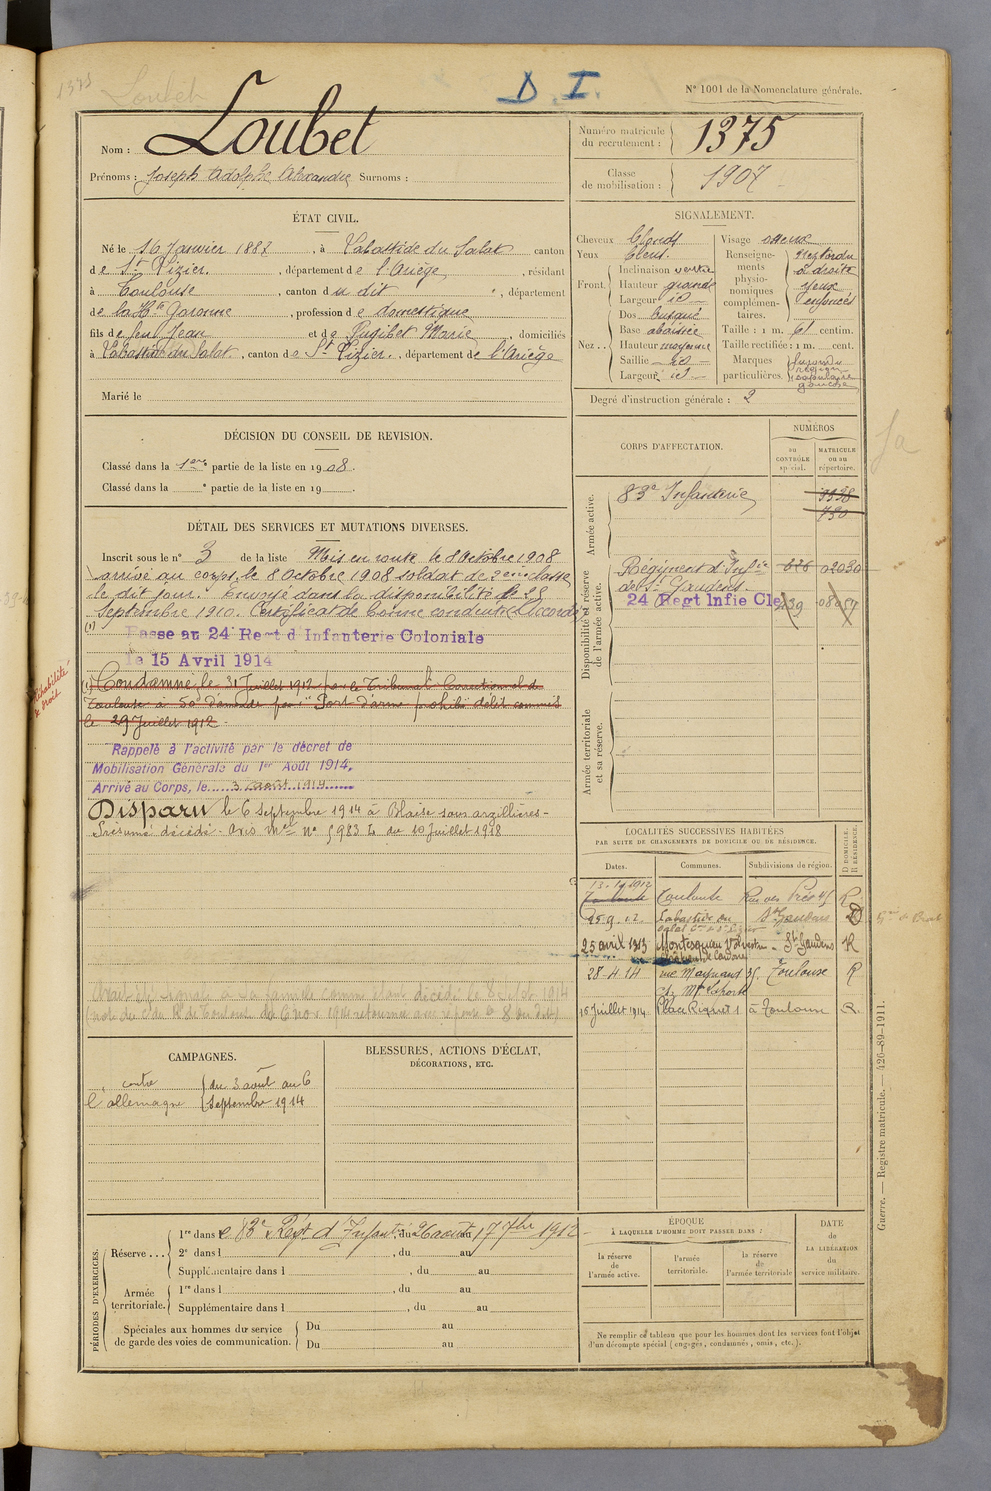 1375
Loubet
D. I.
N° 1001 de la Nomenclature générale.
Nom : Loubet
Prénoms : Joseph Adolphe Alexandre Surnoms :
Numéro matricule du recrutement : 1375
Classe de mobilisation : 1907
ÉTAT CIVIL.
Né le 16 Janvier 1887, à Labastide du Salat canton
de St Lizier, département de l'Ariège, résidant
à Toulouse, canton du dit, département
de la Hte Garonne, profession de domestique
fils de feu Jean et de Pugibet Marie, domiciliés
à Labastide du Salat, canton de St Lizier, département de l'Ariège
Marié le
SIGNALEMENT.
Cheveux blonds
Yeux bleus.
Front. Inclinaison verticale
Hauteur grande
Largeur id
Nez.. Dos busqué
Base abaissée
Hauteur moyenne
Saillie id
Largeur id
Visage osseux
Renseignements physionomiques complémentaires. Nez tordu
à droite
yeux
enfoncés
Taille : 1 m. 61 centim.
Taille rectifiée : 1 m. cent.
Marques particulières.
région
scapulaire
gauche
Degré d'instruction générale : 2
DÉCISION DU CONSEIL DE REVISION.
Classé dans la 1ère partie de la liste en 1908.
Classé dans la e partie de la liste en 19 .
DÉTAIL DES SERVICES ET MUTATIONS DIVERSES.
Inscrit sous le n° 3 de la liste Mis en route le 8 Octobre 1908
arrivé au corps, le 8 Octobre 1908 soldat de 2eme classe
le dit jour. Envoyé dans la disponibilité le 25
Septembre 1910. Certificat de bonne conduite "Accordé"
(1)
Passe au 24 Regt d'Infanterie Coloniale
le 15 Avril 1914
(1) Condamné le 31 Juillet 1912 par le Tribunal Correctionnel de
Toulouse à 50f d'amende pour "Port d'arme prohibée délit commis
le 29 Juillet 1912
Réhabilité
de droit
Rappelé à l'activité par le décret de
Mobilisation Générale du 1er Août 1914.
Arrivé au Corps, le 3 août 1914
Disparu le 6 Septembre 1914 à Blaise sous arzillières -
Présumé décédé - avis Mel n° 5983 L du 10 Juillet 1918
Avait été signalé à sa famille comme étant décédé le 8 1914
CORPS D'AFFECTATION.
NUMÉROS
au CONTRÔLE spécial.
MATRICULE ou au répertoire.
Armée active.
83e Infanterie
730
Disponibilité et réserve de l'armée active.
Régiment d'Infie 626 02030
de St Gaudens
24 Regt Infie Cle 439
Armée territoriale et sa réserve.
LOCALITÉS SUCCESSIVES HABITÉES
PAR SUITE DE CHANGEMENTS DE DOMICILE OU DE RÉSIDENCE.
Dates. Communes. Subdivisions de région. D DOMICILE. R RÉSIDENCE.
Toulouse R
25.9.12. Labastide du St Gaudens D
25 avril 1913 Montesquieu Volvestre - St Gaudens R
28-4-14 rue Maynard 35 Toulouse R
16 juillet 1914 Place Riquet 1 à Toulouse R.
CAMPAGNES.
contre du 3 août au 6
l'allemagne Septembre 1914
BLESSURES, ACTIONS D'ÉCLAT,
DÉCORATIONS, ETC.
PÉRIODES D'EXERCICES.
Réserve... 1re dans le 83e Regt d'Infant., du 26 août au 17 7bre 1912
2e dans l , du au
Supplémentaire dans l , du au
Armée territoriale. 1re dans l , du au
Supplémentaire dans l , du au
Spéciales aux hommes du service de garde des voies de communication. Du au
Du au
ÉPOQUE
À LAQUELLE L'HOMME DOIT PASSER DANS :
la réserve de l'armée active.
l'armée territoriale.
la réserve de l'armée territoriale
DATE de LA LIBÉRATION du service militaire.
Ne remplir ce tableau que pour les hommes dont les services font l'objet
d'un décompte spécial (engagés, condamnés, omis, etc.).
Guerre. — Registre matricule. — 426-89-1911.